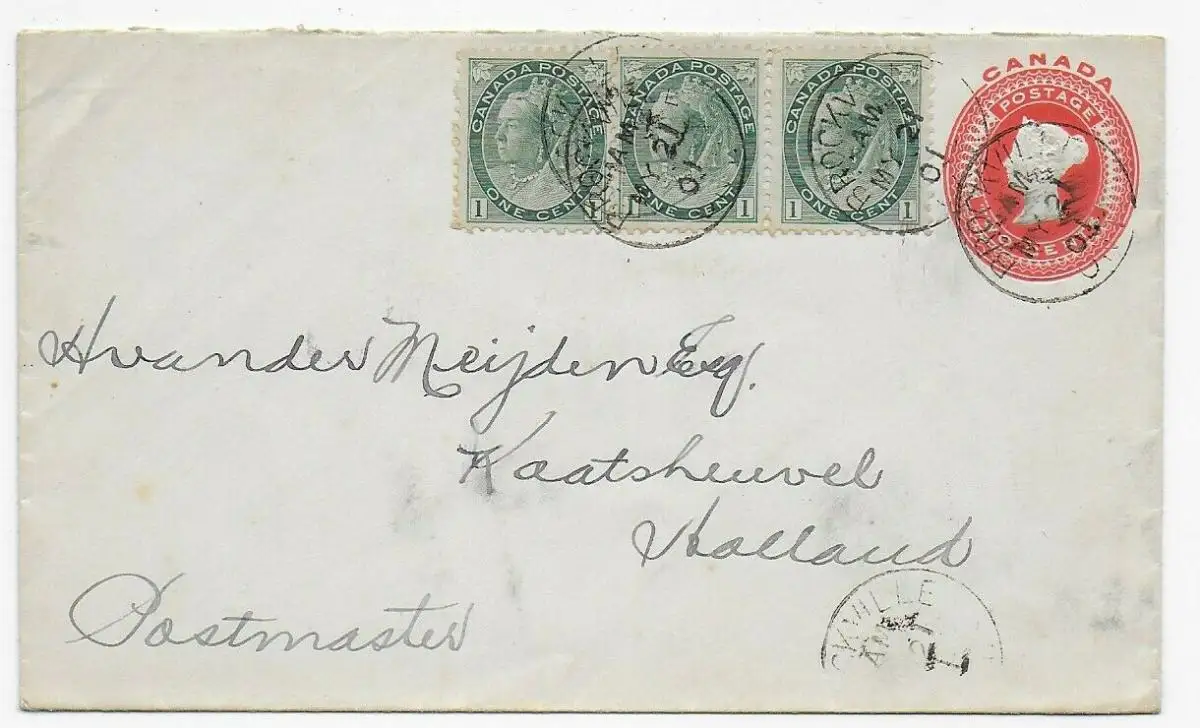 CANADA POSTAGE
1 ONE CENT 1
CANADA POSTAGE
ONE CENT 1
CANADA POSTAGE
1 ONE CENT 1
CANADA
POSTAGE
ONE
BROCKVILLE
AM
MY 21
01
ROCKV
AM
MY 21
01
AM
21
01
H vander Meijden Esq.
Kaatsheuvel
Holland
Postmaster
CKVILLE
AM
21